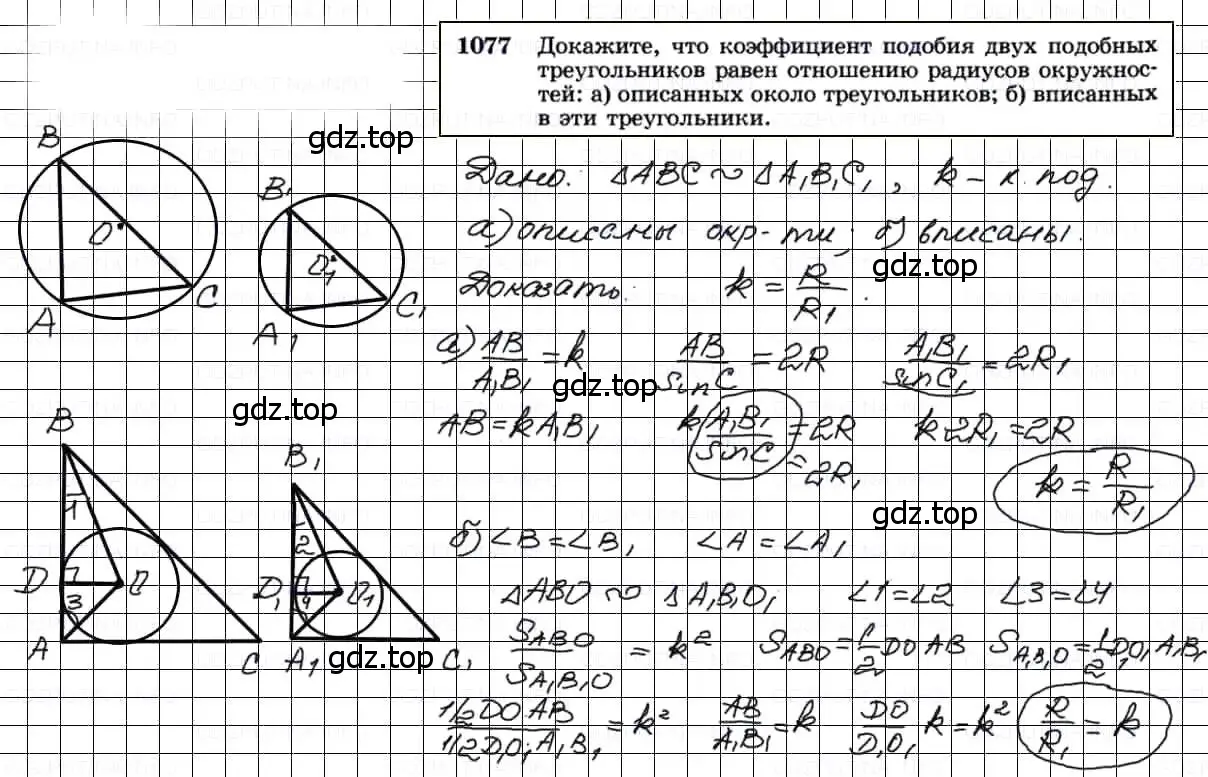 1077 Докажите, что коэффициент подобия двух подобных
треугольников равен отношению радиусов окружнос-
тей: а) описанных около треугольников; б) вписанных
в эти треугольники.
gdz.top
Дано: ΔABC ~ ΔA₁B₁C₁, k – к. под.
а) описаны окр-ти; б) вписаны.
gdz.top
Доказать: k = R/R₁.
B O A C
B₁ O₁ A₁ C₁
а) AB/A₁B₁ = k AB/sinC = 2R A₁B₁/sinC₁ = 2R₁
gdz.top
gdz.top
AB = kA₁B₁ k A₁B₁/sinC = 2R k2R₁ = 2R
= 2R₁
k = R/R₁
gdz.top
B 1 D O 3 A C
B₁ 2 D₁ O₁ 4 A₁ C₁
б) ∠B = ∠B₁ ∠A = ∠A₁
ΔABO ~ ΔA₁B₁O₁ ∠1 = ∠2 ∠3 = ∠4
S_ABO/S_A₁B₁O = k² S_ABO = 1/2 DO AB S_A₁B₁O = 1/2 D₁O₁ A₁B₁
gdz.top
1/2 DO AB / 1/2 D₁O₁ A₁B₁ = k² AB/A₁B₁ = k DO/D₁O₁ k = k² R/R₁ = k